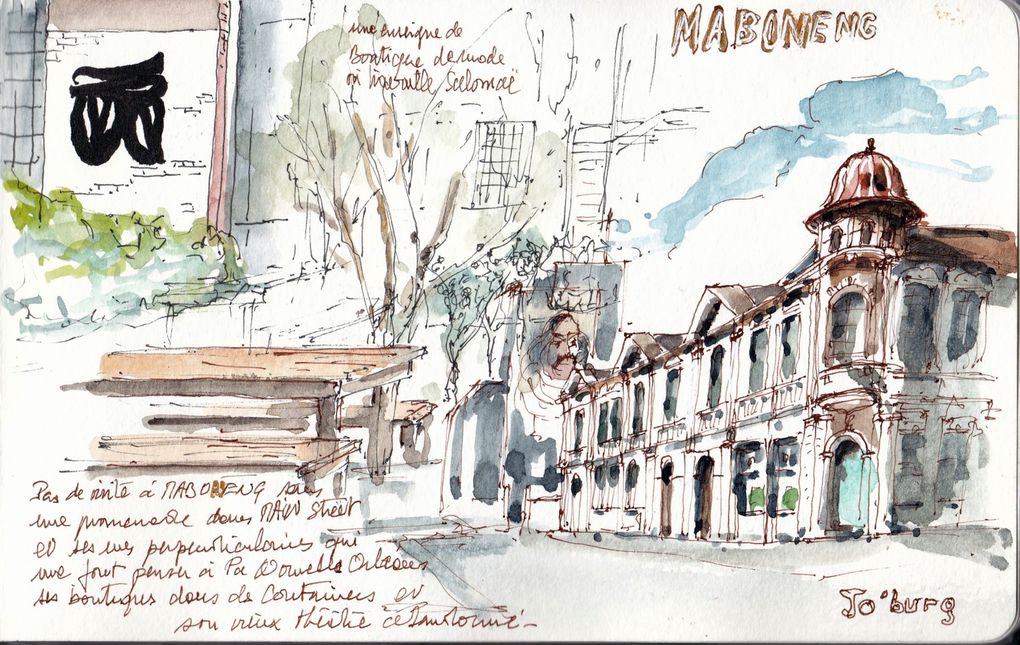 MABONENG
une enseigne de
Boutique de mode
où travaille Salomaï
Pas de visite à MABONENG sans
une promenade dans MAIN Street
et ses rues perpendiculaires qui
me font penser à la Nouvelle Orléans
ses boutiques dans de Containers et
son vieux théâtre
Jo'burg